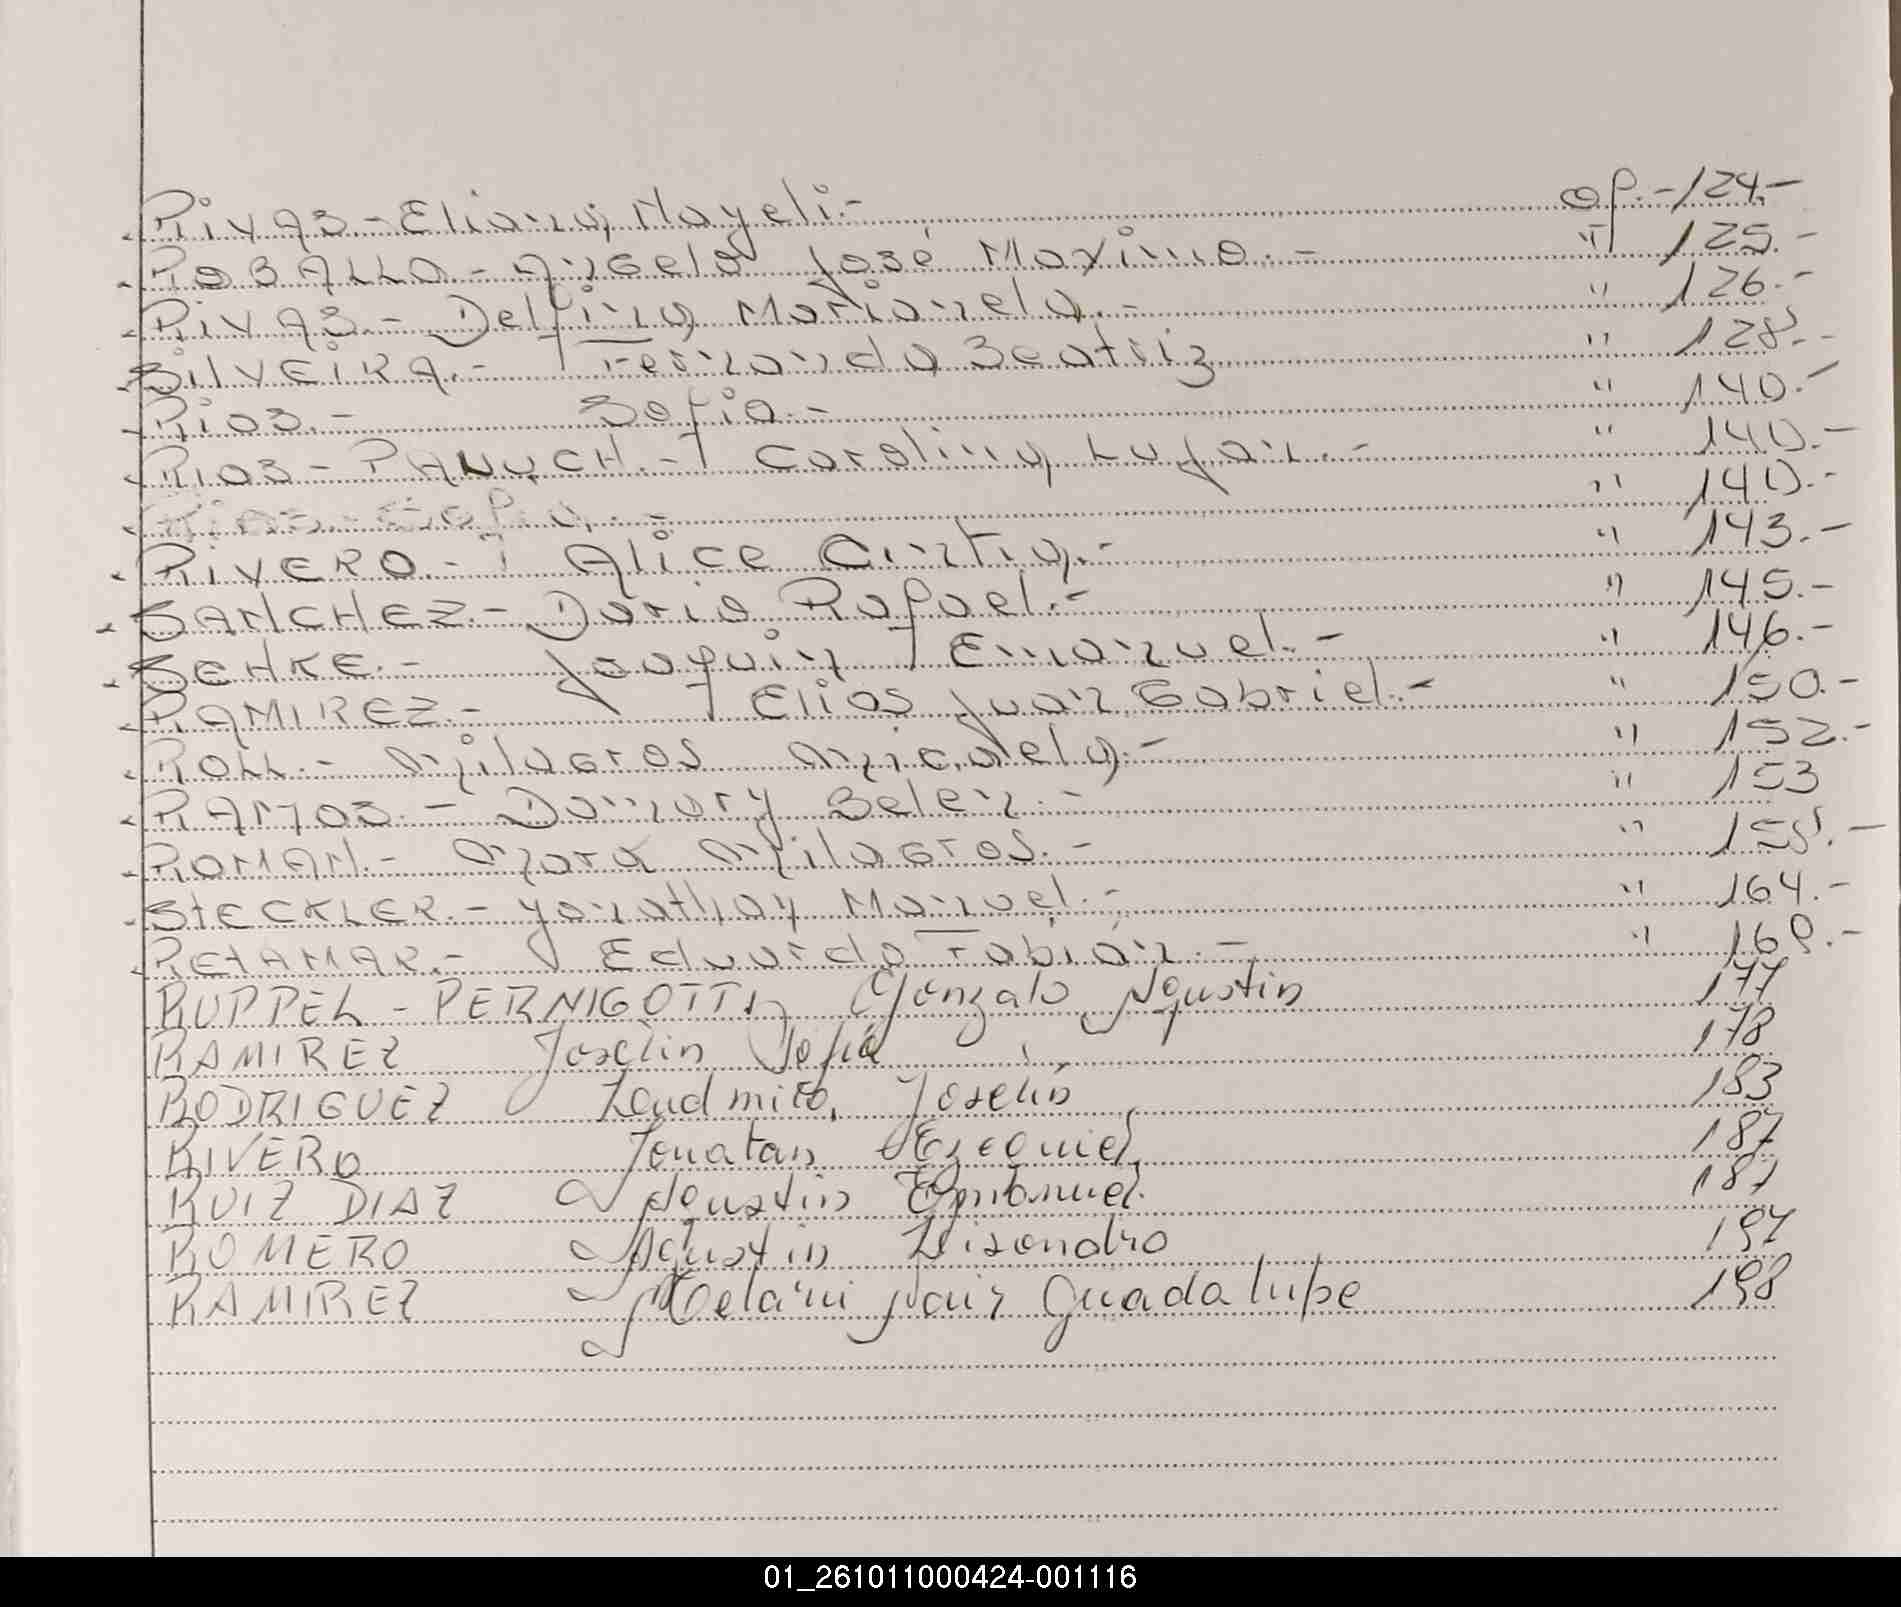 RIVAS - Eliana, Nayeli.- of.- 124.-
ROBALLO.- Angelo José Maximo.- " 125.-
RIVAS.- Delfina Marianela.- " 126.-
SILVEIRA.- Fernanda Beatriz " 128.-
RIOS.- Sofia.- " 140.-
RIOS - PANUCH.- Carolina Lujan.- " 140.-
Rios - Sofia.- " 140.-
RIVERO.- Alice Cintia.- " 143.-
SANCHEZ.- Dario Rafael.- " 145.-
BEHKE.- Joaquin Emanuel.- " 146.-
RAMIREZ.- Elias Juan Gabriel.- " 150.-
ROLL.- Milagros Micaela.- " 152.-
RAMOS.- Damary Belen.- " 153
ROMAN.- Mara Milagros.- " 158.-
STECKLER.- Yonathay Manuel.- " 164.-
RETAMAR.- Eduardo Fabián.- " 169.-
RUPPEL - PERNIGOTTI, Gonzalo Agustin 177
RAMIREZ Joselin Sofia 178
RODRIGUEZ Loudmila, Joselin 183
RIVERO Jonatan Ezequiel, 187
RUIZ DIAZ Agustin Emanuel. 187
ROMERO Agustin Lisandro 197
RAMIREZ Melani Jair Guadalupe 198
01_261011000424-001116